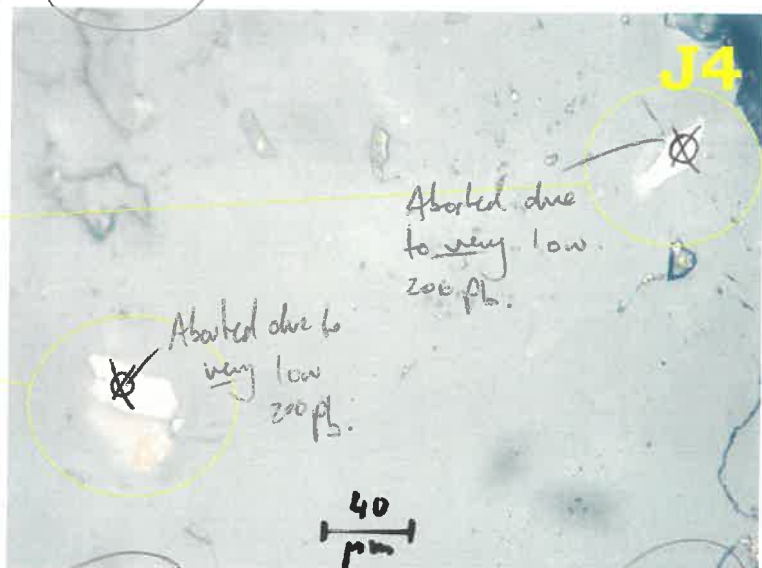 J4
Aborted due
to very low
200 Pb.
Aborted due to
very low
200 Pb.
40
μm